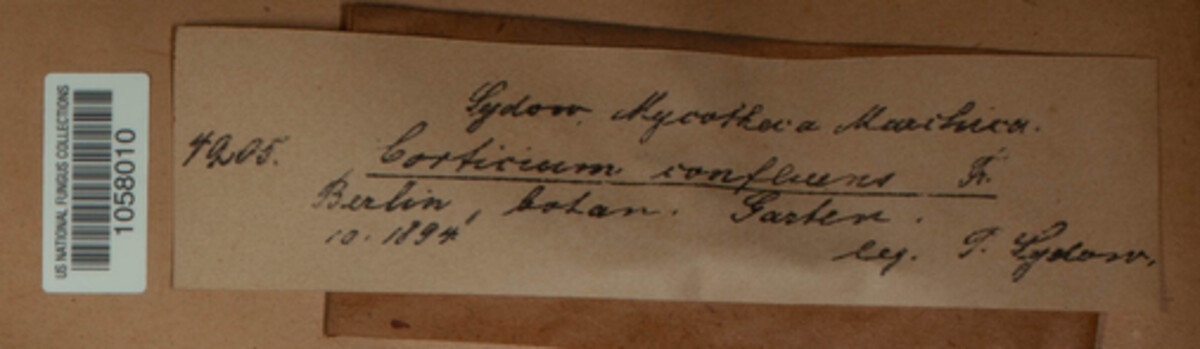 US NATIONAL FUNGUS COLLECTIONS
1058010
Sydow, Mycotheca Marchica.
4205. Corticium confluens Fr.
Berlin, botan. Garten.
10. 1894
leg. P. Sydow.